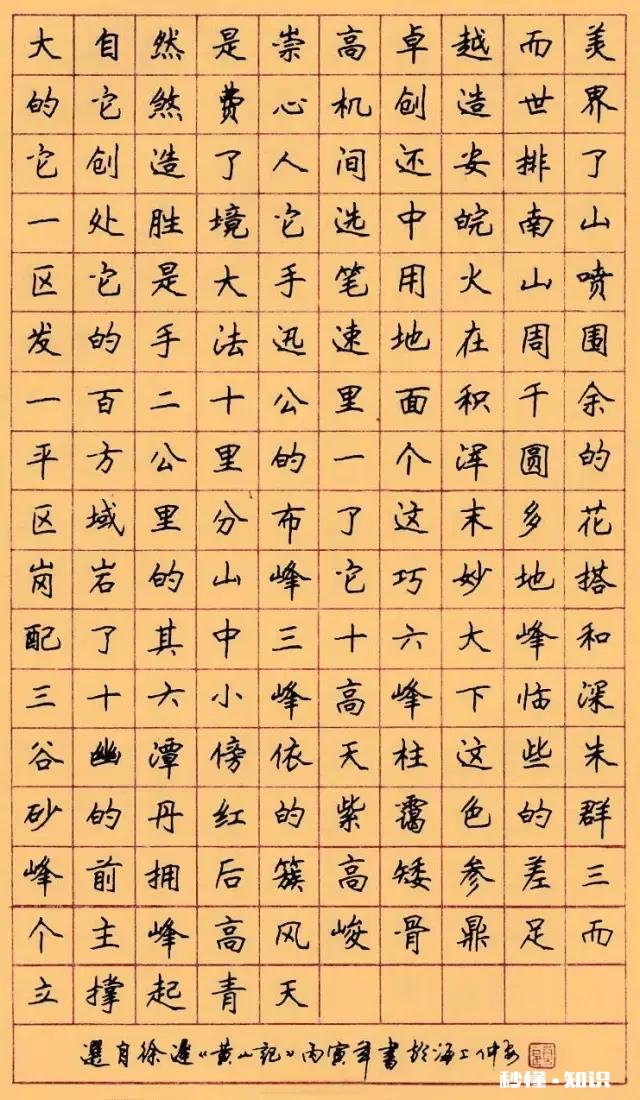 大自然是崇高卓越而美
的它煞费心机创造世界
它创造了人间还安排了
一处胜境它选中皖南山
区它是大手笔用火山喷
发的手法迅速地在周围
一百二十公里面积千余
平方公里的一个浑圆的
区域里分布了这末多花
岗岩的山峰它巧妙地搭
配了其中三十六大峰和
三十六小峰高峰下临深
谷幽潭傍依天柱这些朱
砂的丹红的紫霭色的群
峰前拥后簇高矮参差三
个主峰高风峻骨鼎足而
立撑起青天
選自徐遲《黄山記》丙寅年書於海上
秒懂·知识